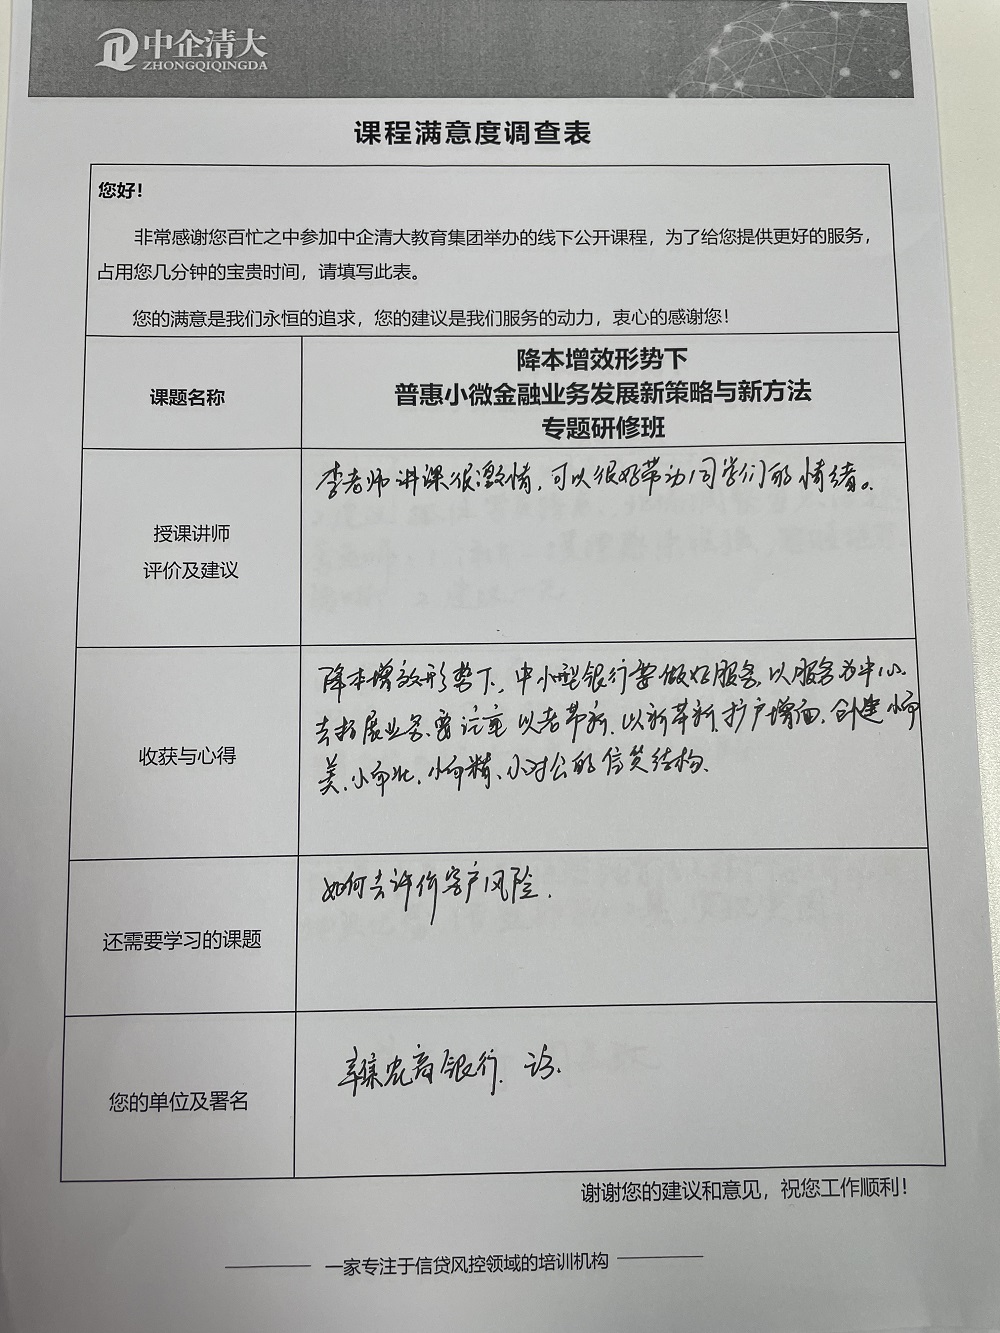 中企清大
ZHONGQIQINGDA
课程满意度调查表
您好！
非常感谢您百忙之中参加中企清大教育集团举办的线下公开课程，为了给您提供更好的服务，
占用您几分钟的宝贵时间，请填写此表。
您的满意是我们永恒的追求，您的建议是我们服务的动力，衷心的感谢您！
课题名称
降本增效形势下
普惠小微金融业务发展新策略与新方法
专题研修班
授课讲师
评价及建议
李老师讲课很激情，可以很好带动同学们的情绪。
收获与心得
降本增效形势下，中小型银行要做好服务，以服务为中心，
去拓展业务、要注重以老带新，以新革新，扩户增面，创建小而
美、小而北、小而精、小对公的信贷结构、
还需要学习的课题
如何去评价客户风险.
您的单位及署名
辛集农商银行.
谢谢您的建议和意见，祝您工作顺利！
一家专注于信贷风控领域的培训机构